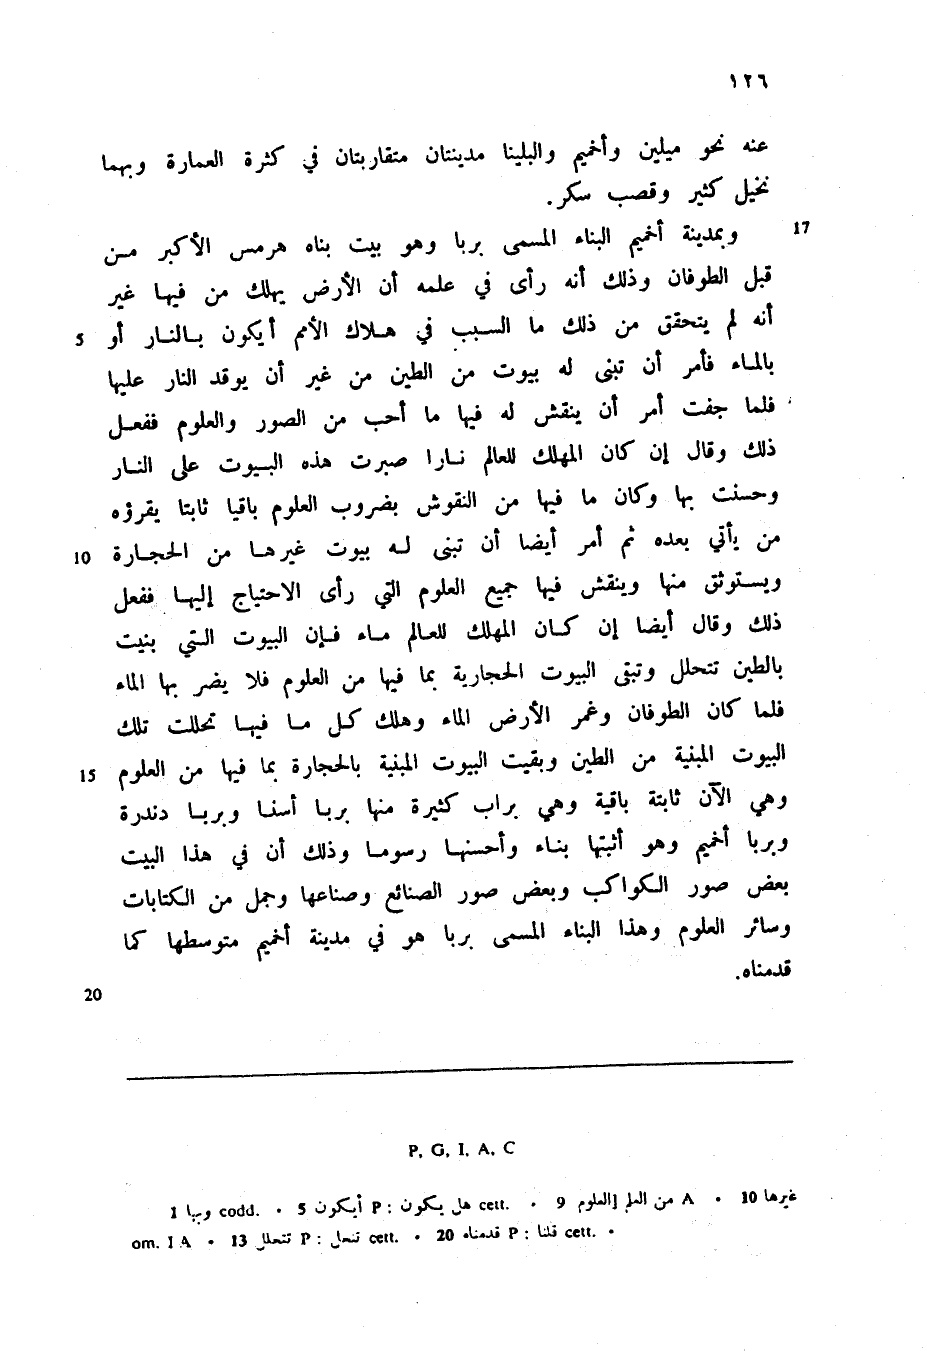 ١٢٦
عنه نحو ميلين وأخميم والبلينا مدينتان متقاربتان في كثرة العمارة وبهما
نخيل كثير وقصب سكر.
17 وبمدينة أخميم البناء المسمى بربا وهو بيت بناه هرمس الأكبر مـن
قبل الطوفان وذلك أنه رأى في علمه أن الأرض يهلك من فيهـا غير
أنه لم يتحقق من ذلك ما السـبب في هـلاك الأمم أيكون بـالنـار أو 5
بالمـاء فأمر أن تبنى له بيوت من الطين من غير أن يوقد النار عليها
فلما جفت أمر أن ينقش له فيها ما أحب من الصور والعلوم ففعـل
ذلك وقال إن كان المهلك للعالم نـارا صبرت هذه البـيوت على النـار
وحسنت بها وكان ما فيها من النقوش بضروب العلوم باقيا ثابتا يقرؤه
من يأتي بعده ثم أمر أيضا أن تبنى لـه بيوت غيرهـا من الحجـارة 10
ويسـتوثق منها وينقش فيها جميع العلوم التي رأى الاحتياج إليهـا ففعل
ذلك وقال أيضا إن كـان المهلك للعـالم مـاء فـإن البيوت الـتي بنيت
بالطين تتحلل وتبقى البيوت الحجارية بما فيها من العلوم فلا يضر بها الماء
فلما كان الطوفان وغمر الأرض الماء وهلك كـل مـا فيهـا تحللت تلك
البيوت المبنية من الطين وبقيت البيوت المبنية بالحجارة بما فيها من العلوم 15
وهي الآن ثابتة باقية وهي براب كثيرة منها بربـا أسنـا وبربـا دندرة
وبربا أخميم وهو أثبتها بناء وأحسنهـا رسومـا وذلك أن في هذا البيت
بعض صور الـكواكب وبعض صور الصنائع وصناعها وجمل من الكتابات
وسائر العلوم وهذا البناء المسمى بربا هو في مدينة أخميم متوسطها كما
قدمناه.
20
P, G, I, A, C
1 وبها codd. • 5 أيكون P : هل يكون cett. • 9 العلوم] من العلم A • 10 غيرها
om. I A • 13 تتحلل P : تنحل cett. • 20 قدمناه P : قلنا cett. •